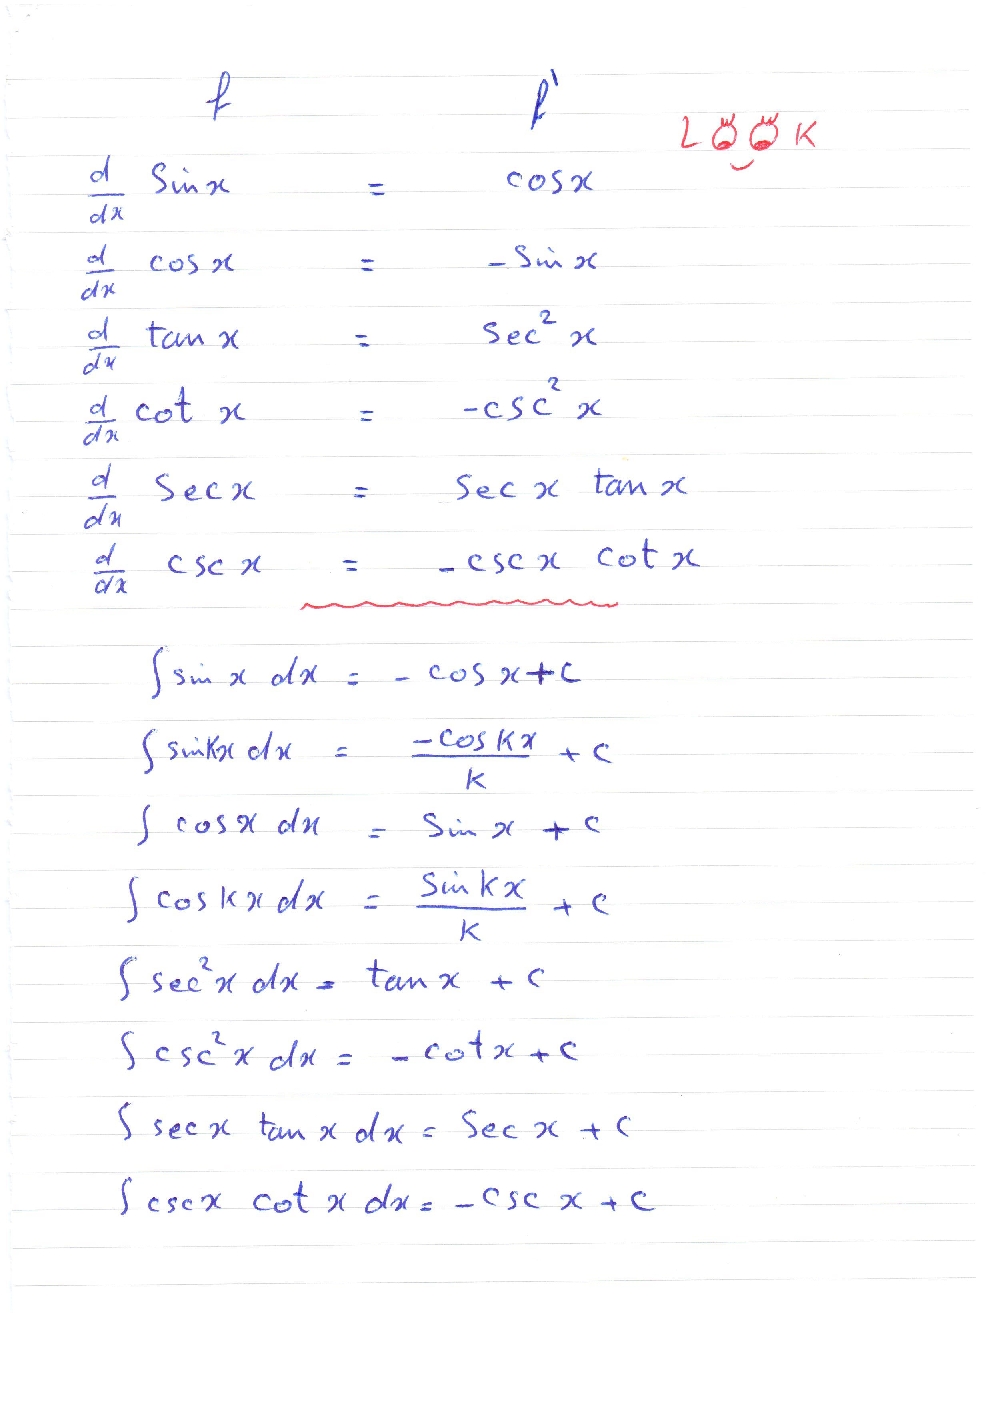 f f'
LOOK
d/dx Sin x = cos x
d/dx cos x = - Sin x
d/dx tan x = Sec² x
d/dx cot x = -csc² x
d/dx Sec x = Sec x tan x
d/dx csc x = - csc x cot x
∫ sin x dx = - cos x + c
∫ sin kx dx = -cos kx / k + c
∫ cos x dx = Sin x + c
∫ cos kx dx = Sin kx / k + c
∫ sec² x dx = tan x + c
∫ csc² x dx = - cot x + c
∫ sec x tan x dx = Sec x + c
∫ csc x cot x dx = - csc x + c